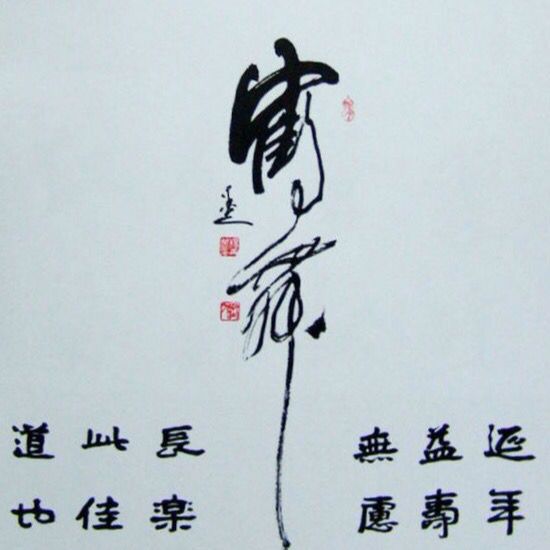 鶴舞
延年
益壽
無慮
長楽
此佳
道也